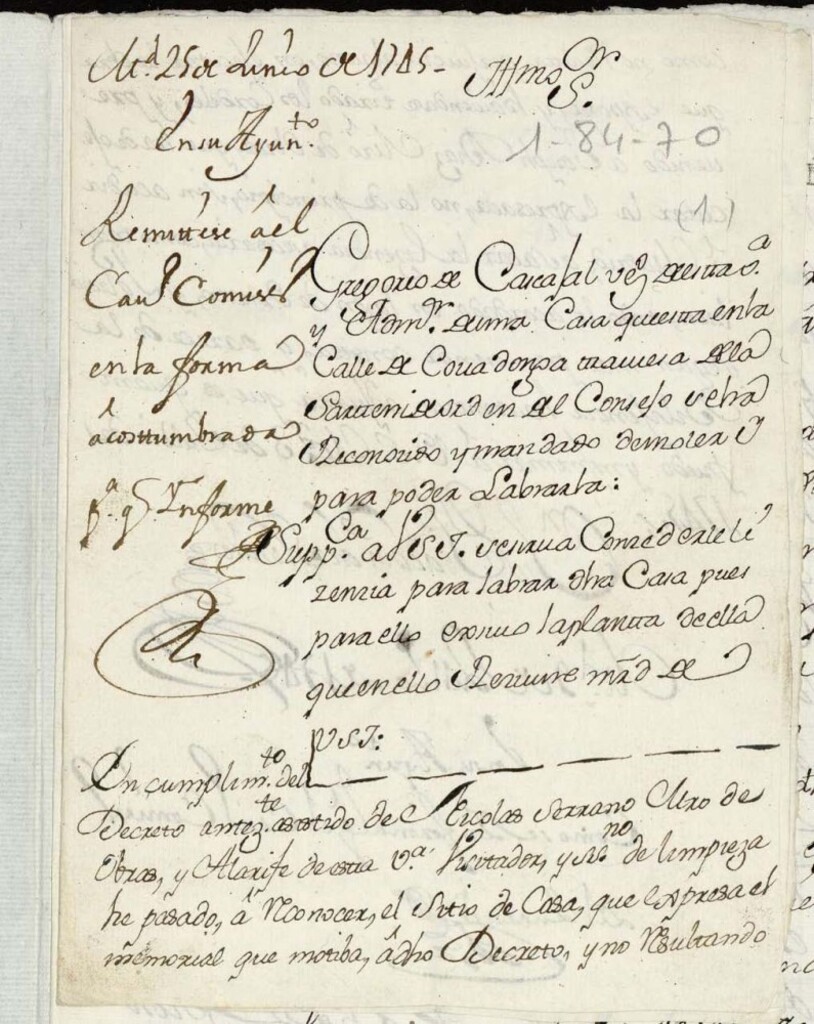 Md. 25 de Junio de 1715-
Illmo Sr.
En su Ayunto.
1-84-70
(1)
Remittese âel
Cavro Comisso
en la forma
âcosttumbrada
pa. q. Ynforme
Gregorio de Carcajal veo de esta va.
y Admor. de una Casa que esta en la
Calle de Coua donga trauiesa de la
Sarten de orden del Consejo se ha
Reconozido y mandado demoler
para poder Labrarla:
Suppca. a V S I. se sirua Conzederle li
zenzia para labrar dha Casa pues
para ello exiuo la planta de ella
que en ello Reziuire mrd de
V S I:
En cumplimto. del
Decreto antezte. asistido de Nicolas Serrano Mro de
Obras, y Alarife de esta va. Visitador, y de limpieza
he pasado, â Rconocer, el Sitio de Casa, que expresa el
memorial que motiba, âdho Decreto, y no Rsultando